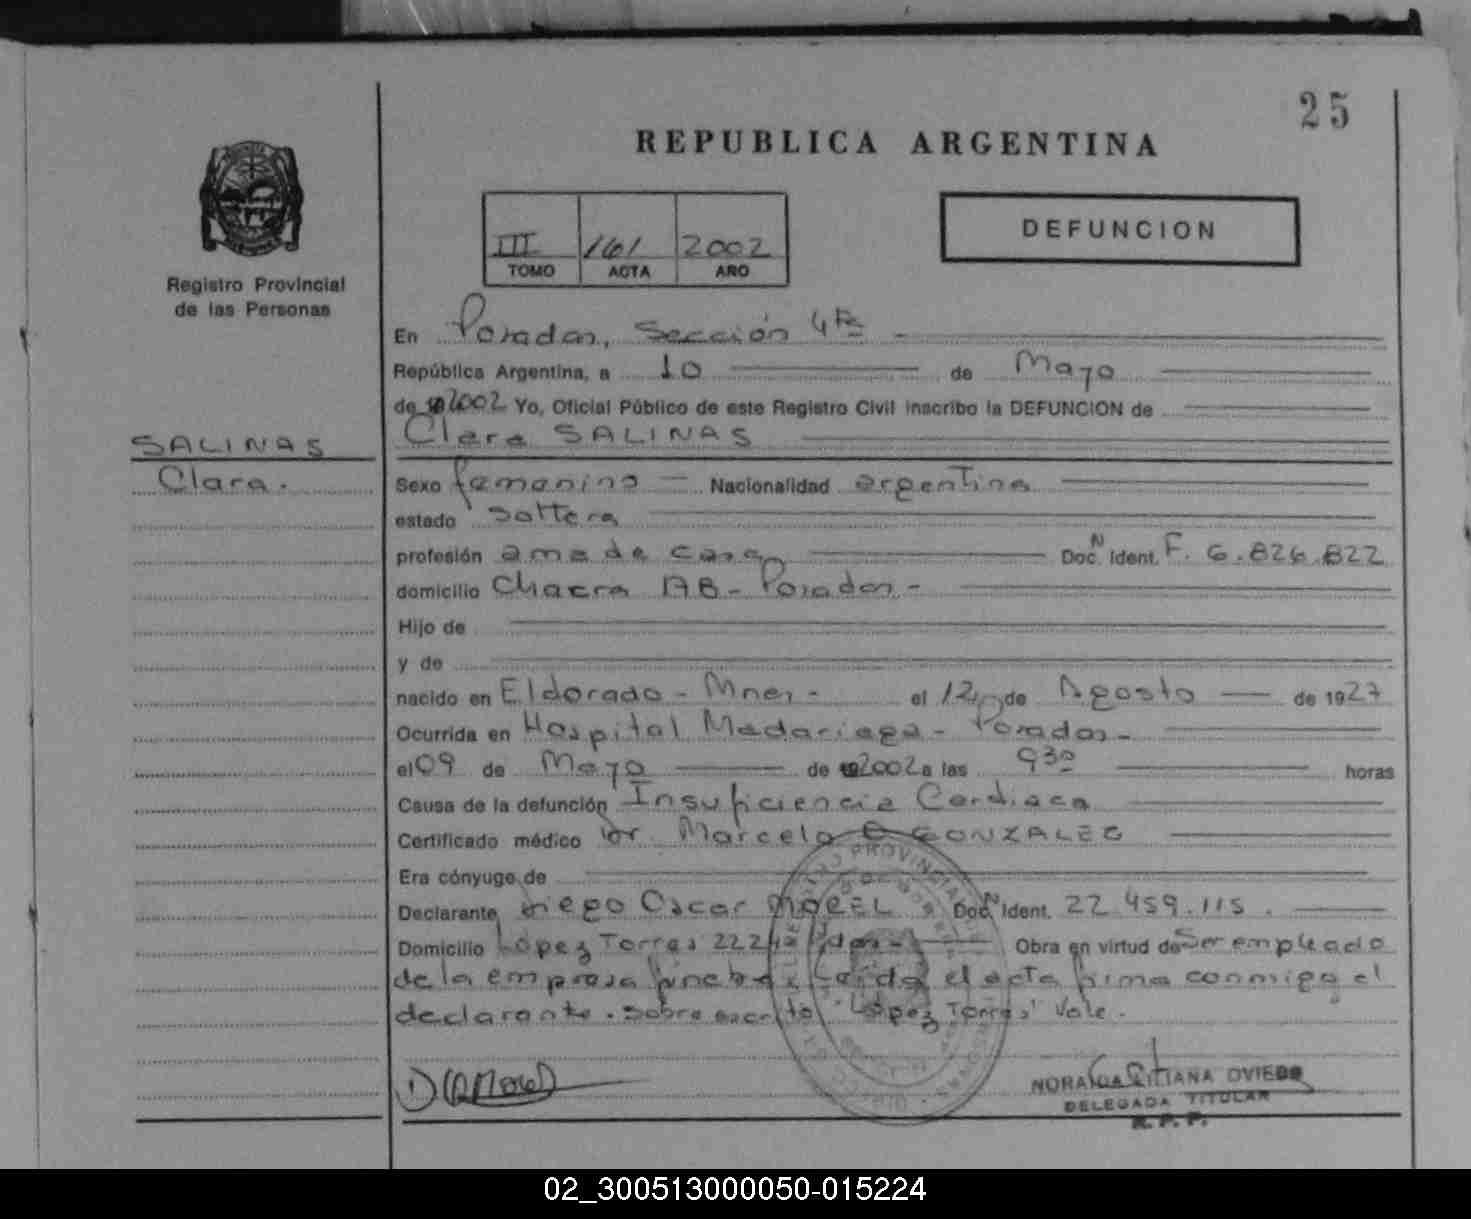 25
REPUBLICA ARGENTINA
III 161 2002
TOMO ACTA AÑO
DEFUNCION
Registro Provincial
de las Personas
En Posadas, Sección 4ta
República Argentina, a 10 de Mayo
de 2002 Yo, Oficial Público de este Registro Civil inscribo la DEFUNCION de
SALINAS
Clara SALINAS
Clara.
Sexo femenino Nacionalidad argentina
estado soltera
profesión ama de casa Doc. N Ident. F. 6.826.822
domicilio Chacra - Posadas -
Hijo de
y de
nacido en Eldorado - Mnes - el 12 de Agosto de 1927
Ocurrida en Hospital Madariaga - Posadas -
el 09 de Mayo de 2002 a las 9 30 horas
Causa de la defunción Insuficiencia Cardiaca
Certificado médico Dr. Marcelo GONZALEZ
Era cónyuge de
Declarante Diego Oscar MOREL Doc. N Ident. 22.459.115.
Domicilio López Torres Pdas - Obra en virtud de Ser empleado
de la empresa fúnebre Leída el acta firma conmigo el
declarante. Sobre escrito "López Torres" Vale.
NORA LILIANA OVIEDO
DELEGADA TITULAR
R. P. P.
02_300513000050-015224